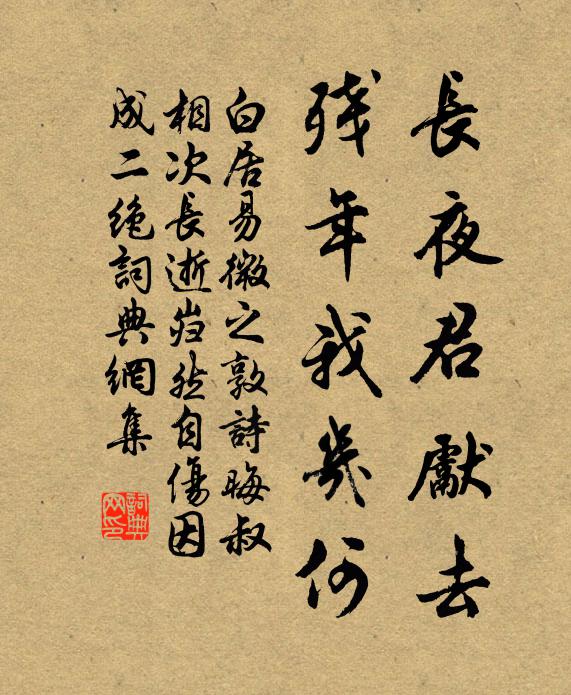 長夜君獻去
殘年我幾何
白居易微之敦詩晦叔
相次長逝岿然自傷因
成二絶詞典網集
詞典
网印